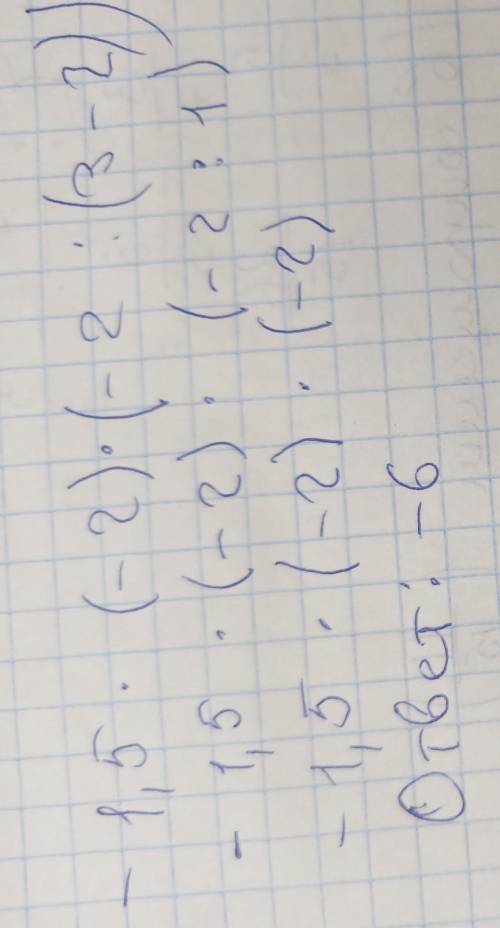 - 1,5 · (-2) · (-2 : (3-2))
- 1,5 · (-2) · (-2 : 1)
- 1,5 · (-2) · (-2)
Ответ: -6